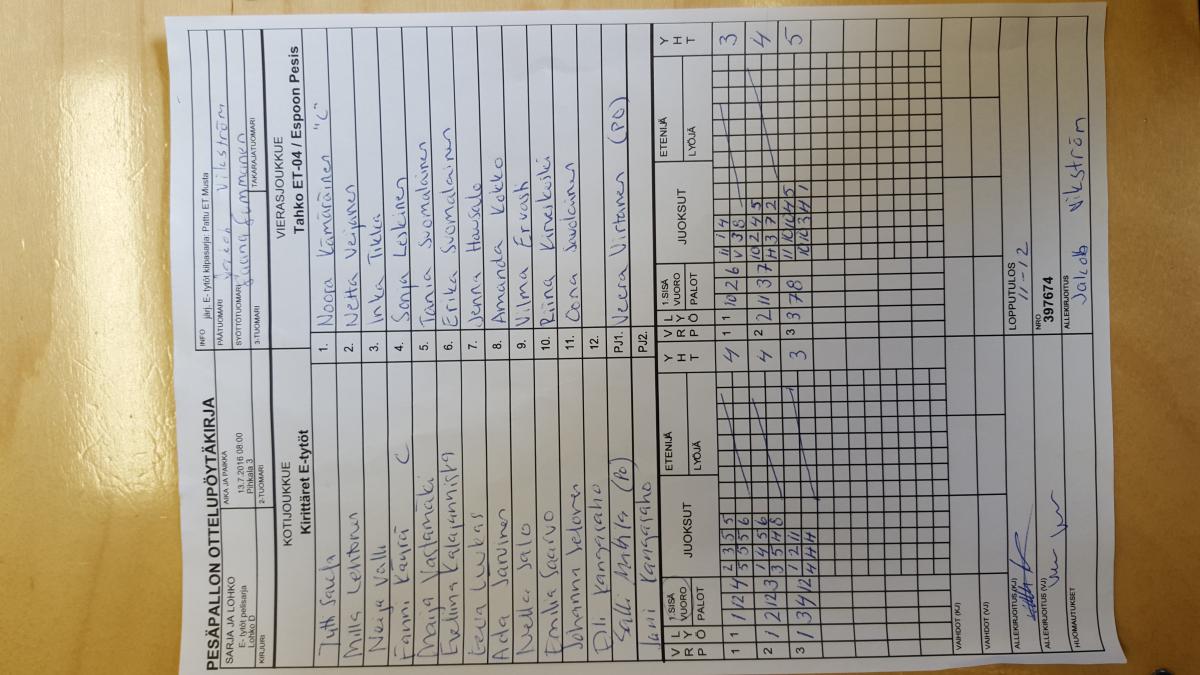 PESÄPALLON OTTELUPÖYTÄKIRJA
SARJA JA LOHKO
E- tytöt pelisarja
Lohko D
AIKA JA PAIKKA
13.7.2016 08:00
Pihkala 3
INFO järj. E- tytöt kilpasarja: Pattu ET Musta
PÄÄTUOMARI Jakob Vikström
SYÖTTÖTUOMARI
TAKARAJATUOMARI
KIRJURI
2-TUOMARI
3-TUOMARI
KOTIJOUKKUE
Kirittäret E-tytöt
VIERASJOUKKUE
Tahko ET-04 / Espoon Pesis
1. Noora Kämäräinen "C"
Milla Lehtonen 2. Netta Veijanen
Neija Valli 3. Inka Tikka
Fanni Käyrä C 4. Sonja Leskinen
Maija Vartamäki 5. Tania Suomalainen
Eveliina Kalajanniska 6. Erika Suomalainen
Eeva Luukas 7. Jenna Hausalo
Ada Järvinen 8. Amanda Kokko
Nella Salo 9. Vilma Ervasti
Emilia Saarvo 10. Riina Kirveskoski
Johanna Selonen 11. Oona Savolainen
Olli Kangasaho 12.
Salli (PO) PJ1. Veera Virtainen (PO)
Jani Kangasaho PJ2.
V R P
L Y Ö
1:SISÄ
VUORO
PALOT
JUOKSUT
ETENIJÄ
LYÖJÄ
Y H T
V R P
L Y Ö
1:SISÄ
VUORO
PALOT
JUOKSUT
ETENIJÄ
LYÖJÄ
Y H T
1 1 12 4 2 3 5 5 4 1 1 10 2 6 11 1 4 3
5 5 5 6 V 3 8
2 1 2 12 3 1 4 5 6 4 2 2 11 3 7 10 2 4 5 4
3 5 4 8 H 3 7 2
3 1 3 4 12 1 2 11 3 3 3 7 8 11 10 11 4 5 5
4 4 4 10 10 3 4 1
VAIHDOT (KJ)
VAIHDOT (VJ)
ALLEKIRJOITUS (KJ)
ALLEKIRJOITUS (VJ)
HUOMAUTUKSET
LOPPUTULOS
11-12
NRO
397674
ALLEKIRJOITUS
Jakob Vikström